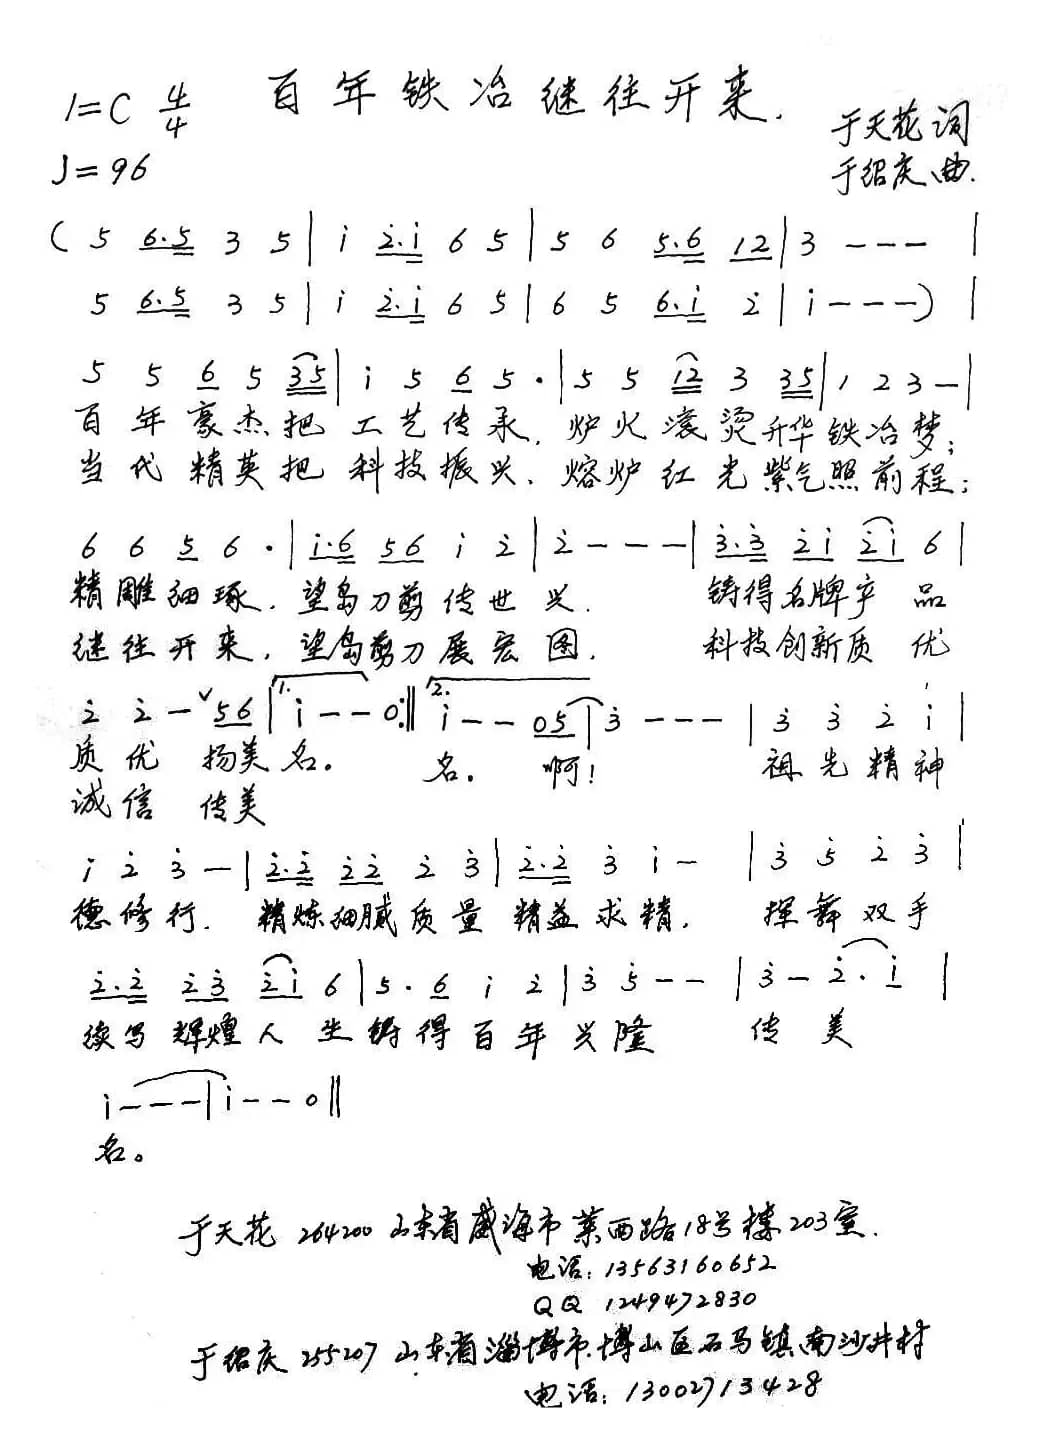 1=C 4/4 百年铁冶继往开来.
于天花词
♩=96
于绍庆曲.
( 5 6.5 3 5 | i 2̇.i 6 5 | 5 6 5.6 12 | 3 --- |
5 6.5 3 5 | i 2̇.i 6 5 | 6 5 6.i 2̇ | i --- ) |
5 5 6 5 35 | i 5 6 5 · | 5 5 12 3 35 | 1 2 3 - |
百年豪杰把工艺传承,炉火滚烫升华铁冶梦;
当代精英把科技振兴,熔炉红光紫气照前程;
6 6 5 6 · | i.6 56 i 2̇ | 2̇ --- | 3̇.3̇ 2̇i 2̇i 6 |
精雕细琢,望岛刀剪传世兴. 铸得名牌产品
继往开来,望岛剪刀展宏图. 科技创新质优
2̇ 2̇ - ∨ 56 | 1. i -- 0 :‖ 2. i -- 05 | 3̇ --- | 3̇ 3̇ 2̇ i |
质优 扬美名。 名。 啊! 祖先精神
诚信 传美
i 2̇ 3̇ - | 2̇.2̇ 2̇2̇ 2̇ 3̇ | 2̇.2̇ 3̇ i - | 3̇ 5̇ 2̇ 3̇ |
德修行. 精炼细腻质量精益求精. 挥舞双手
2̇.2̇ 2̇3̇ 2̇i 6 | 5 · 6 i 2̇ | 3̇ 5̇ -- | 3̇ - 2̇ · i |
续写辉煌人生铸得百年兴隆 传美
i --- | i -- 0 ‖
名。
于天花 264200 山东省威海市莱西路18号楼203室.
电话:13563160652
QQ 1249472830
于绍庆 255207 山东省淄博市博山区石马镇南沙井村
电话:13002713428